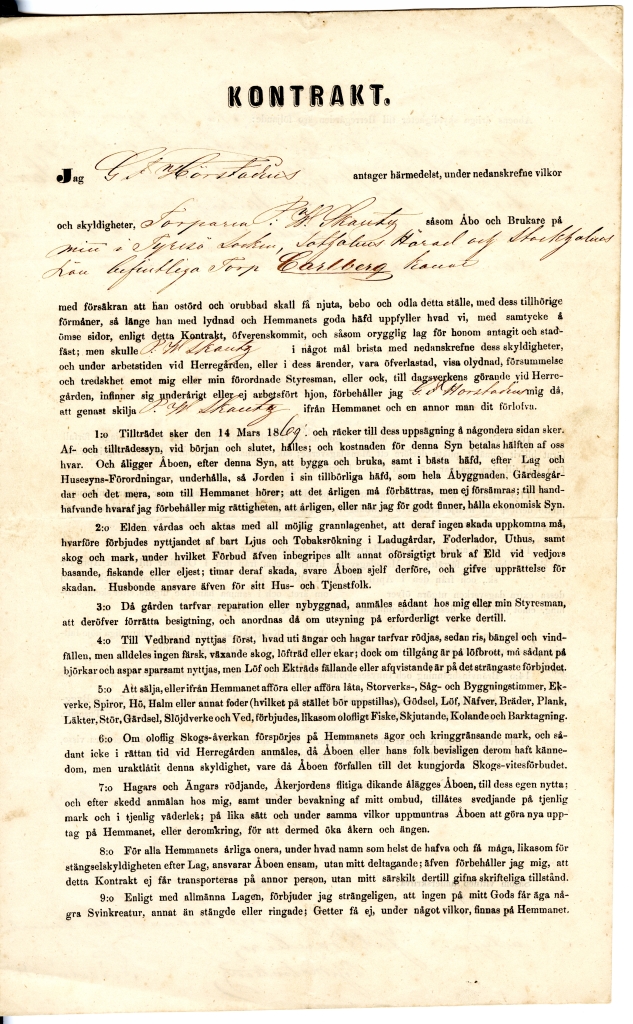 KONTRAKT.
Jag G. A. Hörstadius antager härmedelst, under nedanskrefne vilkor
och skyldigheter, Torparen P. W. Skantz såsom Åbo och Brukare på
mitt i Tyresö Socken, Sotholms Härad och Stockholms
Län befintliga Torp Carlberg kanat
med försäkran att han ostörd och orubbad skall få njuta, bebo och odla detta ställe, med dess tillhörige
förmåner, så länge han med lydnad och Hemmanets goda häfd uppfyller hvad vi, med samtycke å
ömse sidor, enligt detta Kontrakt, öfverenskommit, och såsom orygglig lag för honom antagit och stad-
fäst; men skulle P. W. Skantz i något mål brista med nedanskrefne dess skyldigheter,
och under arbetstiden vid Herregården, eller i dess ärender, vara öfverlastad, visa olydnad, försummelse
och tredskhet emot mig eller min förordnade Styresman, eller ock, till dagsverkens görande vid Herre-
gården, infinner sig underårigt eller ej arbetsfört hjon, förbehåller jag G A Hörstadius mig då,
att genast skilja P. W. Skantz ifrån Hemmanet och en annor man dit förlofva.
1:o Tillträdet sker den 14 Mars 1869. och räcker till dess uppsägning å någondera sidan sker.
Af- och tillträdessyn, vid början och slutet, hålles; och kostnaden för denna Syn betalas hälften af oss
hvar. Och åligger Åboen, efter denna Syn, att bygga och bruka, samt i bästa häfd, efter Lag och
Husesyns-Förordningar, underhålla, så Jorden i sin tillbörliga häfd, som hela Åbyggnaden, Gärdesgår-
dar och det mera, som till Hemmanet hörer; att det årligen må förbättras, men ej försämras; till hand-
hafvande hvaraf jag förbehåller mig rättigheten, att årligen, eller när jag för godt finner, hålla ekonomisk Syn.
2:o Elden vårdas och aktas med all möjlig grannlagenhet, att deraf ingen skada uppkomma må,
hvarföre förbjudes nyttjandet af bart Ljus och Tobaksrökning i Ladugårdar, Foderlador, Uthus, samt
skog och mark, under hvilket Förbud äfven inbegripes allt annat oförsigtigt bruk af Eld vid vedjors
basande, fiskande eller eljest; timar deraf skada, svare Åboen sjelf derföre, och gifve upprättelse för
skadan. Husbonde ansvare äfven för sitt Hus- och Tjenstfolk.
3:o Då gården tarfvar reparation eller nybyggnad, anmäles sådant hos mig eller min Styresman,
att deröfver förrätta besigtning, och anordnas då om utsyning på erforderligt verke dertill.
4:o Till Vedbrand nyttjas först, hvad uti ängar och hagar tarfvar rödjas, sedan ris, bängel och vind-
fällen, men alldeles ingen färsk, växande skog, löfträd eller ekar; dock om tillgång är på löfbrott, må sådant på
björkar och aspar sparsamt nyttjas, men Löf och Ekträds fällande eller afqvistande är på det strängaste förbjudet.
5:o Att sälja, eller ifrån Hemmanet afföra eller afföra låta, Storverks-, Såg- och Byggningstimmer, Ek-
verke, Spiror, Hö, Halm eller annat foder (hvilket på stället bör uppstillas), Gödsel, Löf, Näfver, Bräder, Plank,
Läkter, Stör, Gärdsel, Slöjdverke och Ved, förbjudes, likasom olofligt Fiske, Skjutande, Kolande och Barktagning.
6:o Om oloflig Skogs-åverkan förspörjes på Hemmanets ägor och kringgränsande mark, och så-
dant icke i rättan tid vid Herregården anmäles, då Åboen eller hans folk bevisligen derom haft känne-
dom, men uraktlåtit denna skyldighet, vare då Åboen förfallen till det kungjorda Skogs-vitesförbudet.
7:o Hagars och Ängars rödjande, Åkerjordens flitiga dikande ålägges Åboen, till dess egen nytta;
och efter skedd anmälan hos mig, samt under bevakning af mitt ombud, tillåtes svedjande på tjenlig
mark och i tjenlig väderlek; på lika sätt och under samma vilkor uppmuntras Åboen att göra nya upp-
tag på Hemmanet, eller deromkring, för att dermed öka åkern och ängen.
8:o För alla Hemmanets årliga onera, under hvad namn som helst de hafva och få måga, likasom för
stängselskyldigheten efter Lag, ansvarar Åboen ensam, utan mitt deltagande; äfven förbehåller jag mig, att
detta Kontrakt ej får transporteras på annor person, utan mitt särskilt dertill gifna skrifteliga tillstånd.
9:o Enligt med allmänna Lagen, förbjuder jag strängeligen, att ingen på mitt Gods får äga nå-
gra Svinkreatur, annat än stängde eller ringade; Getter få ej, under något vilkor, finnas på Hemmanet.